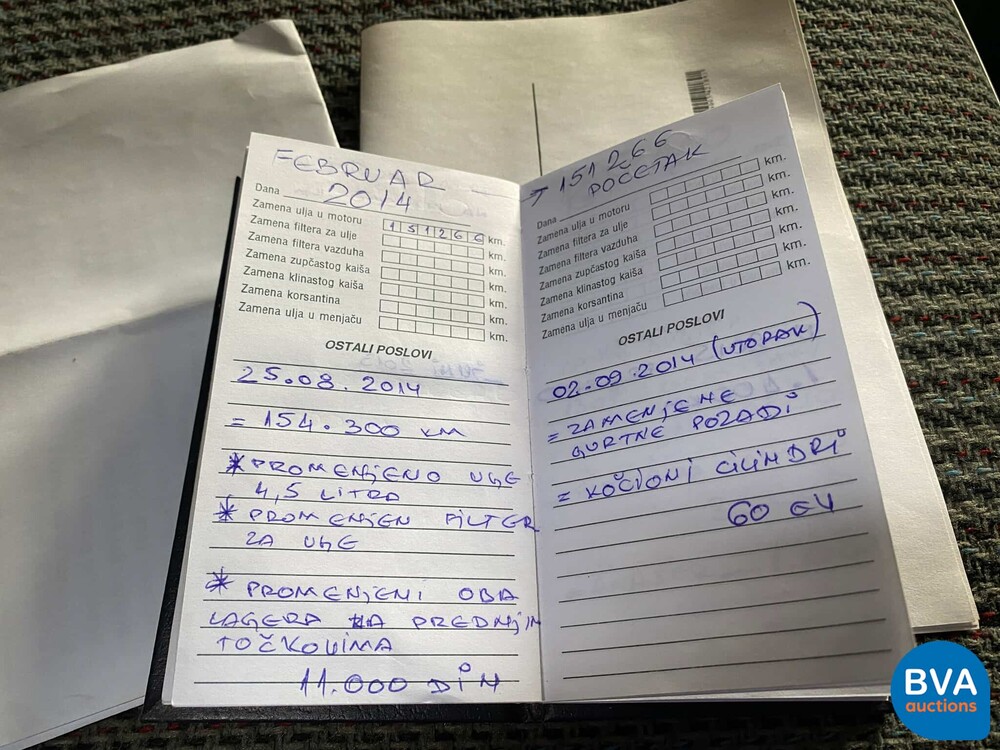 FEBRUAR
2014
Dana
Zamena ulja u motoru
1 5 1 2 6 6 km.
Zamena filtera za ulje
km.
Zamena filtera vazduha
km.
Zamena zupčastog kaiša
km.
Zamena klinastog kaiša
km.
Zamena korsantina
km.
Zamena ulja u menjaču
km.
OSTALI POSLOVI
25.08.2014
= 154.300 KM
* PROMENJENO ULJE
4,5 LITRA
* PROMENJEN FILTER
ZA ULJE
* PROMENJENI OBA
LAGERA NA PREDNJIM
TOČKOVIMA
11.000 DIN
→ 151266
POČETAK
Dana
Zamena ulja u motoru
km.
Zamena filtera za ulje
km.
Zamena filtera vazduha
km.
Zamena zupčastog kaiša
km.
Zamena klinastog kaiša
km.
Zamena korsantina
km.
Zamena ulja u menjaču
km.
OSTALI POSLOVI
02.09.2014 (UTORAK)
= ZAMENJENE
GURTNE POZADI
= KOČIONI CILINDRI
60 EU
BVA
auctions